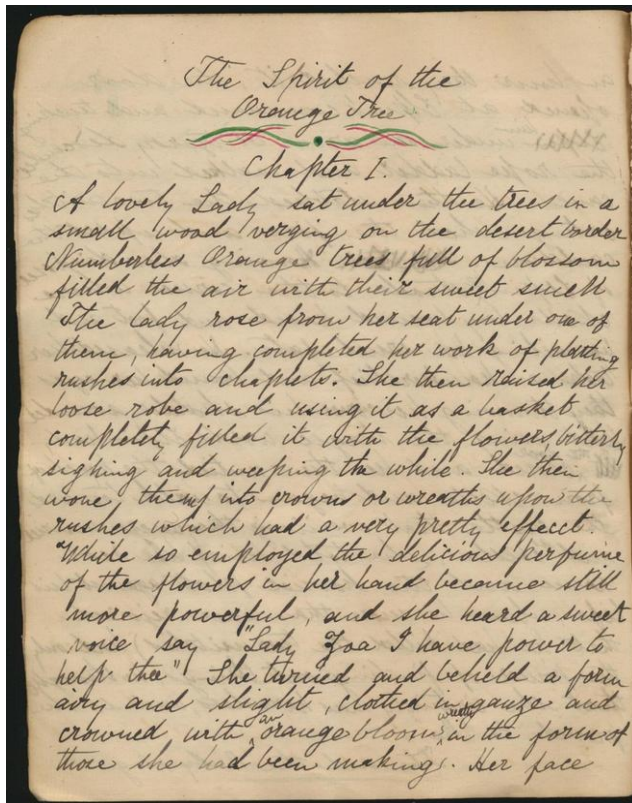 The Spirit of the
Orange Tree
Chapter I.
A lovely Lady sat under the trees in a
small wood verging on the desert border
Numberless Orange trees full of blossom
filled the air with their sweet smell
The lady rose from her seat under one of
them, having completed her work of platting
rushes into chaplets. She then raised her
loose robe and using it as a basket
completely filled it with the flowers, bitterly
sighing and weeping the while. She then
wove them into crowns or wreaths upon the
rushes which had a very pretty effecct.
While so employed the delicious perfume
of the flowers in her hand became still
more powerful, and she heard a sweet
voice say "Lady Zoa I have power to
help thee" She turned and beheld a form
airy and slight, clothed in gauze and
crowned, with an orange bloom wreath in the form of
those she had been making. Her face